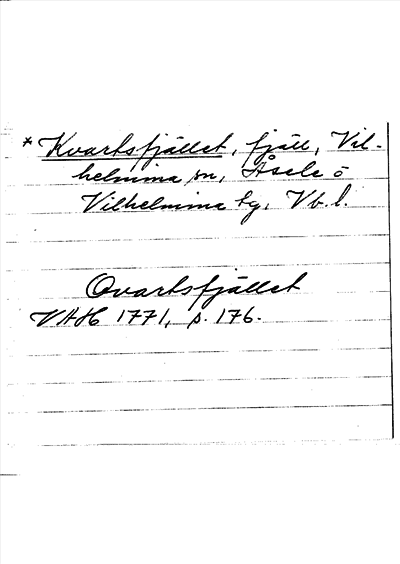 * Kvartsfjället, fjäll, Vil-
helmina sn, Åsele o
Vilhelmina tg, Vb. l.
Qvartsfjället
VAH 1771, s. 176.